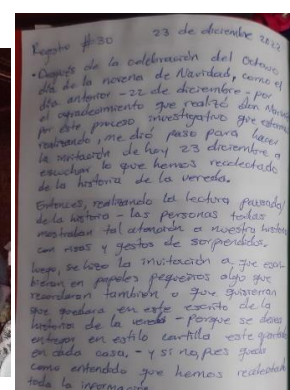 Registro #30 23 de diciembre 2022
• Después de la celebración del Octavo
día de la novena de Navidad, como el
día anterior - 22 de diciembre - por
el agradecimiento que realizó don
por este proceso investigativo que estamos
realizando, me dió paso para hacer
la invitación de hoy 23 diciembre a
escuchar lo que hemos recolectado
de la historia de la vereda.
Entonces, realizando la lectura pausada
de la historia - las personas todas
mostraban tal atención a nuestra historia
con risas y gestos de sorprendidos.
luego, se hizo la invitación a que escri
bieran en papeles pequeños algo que
recordaran también o que quisieran
que quedara en este escrito de la
historia de la vereda - porque se desea
entregar en estilo cartilla este
en cada casa, - y si no, pues queda
como entendido que hemos recolectado
toda la información.